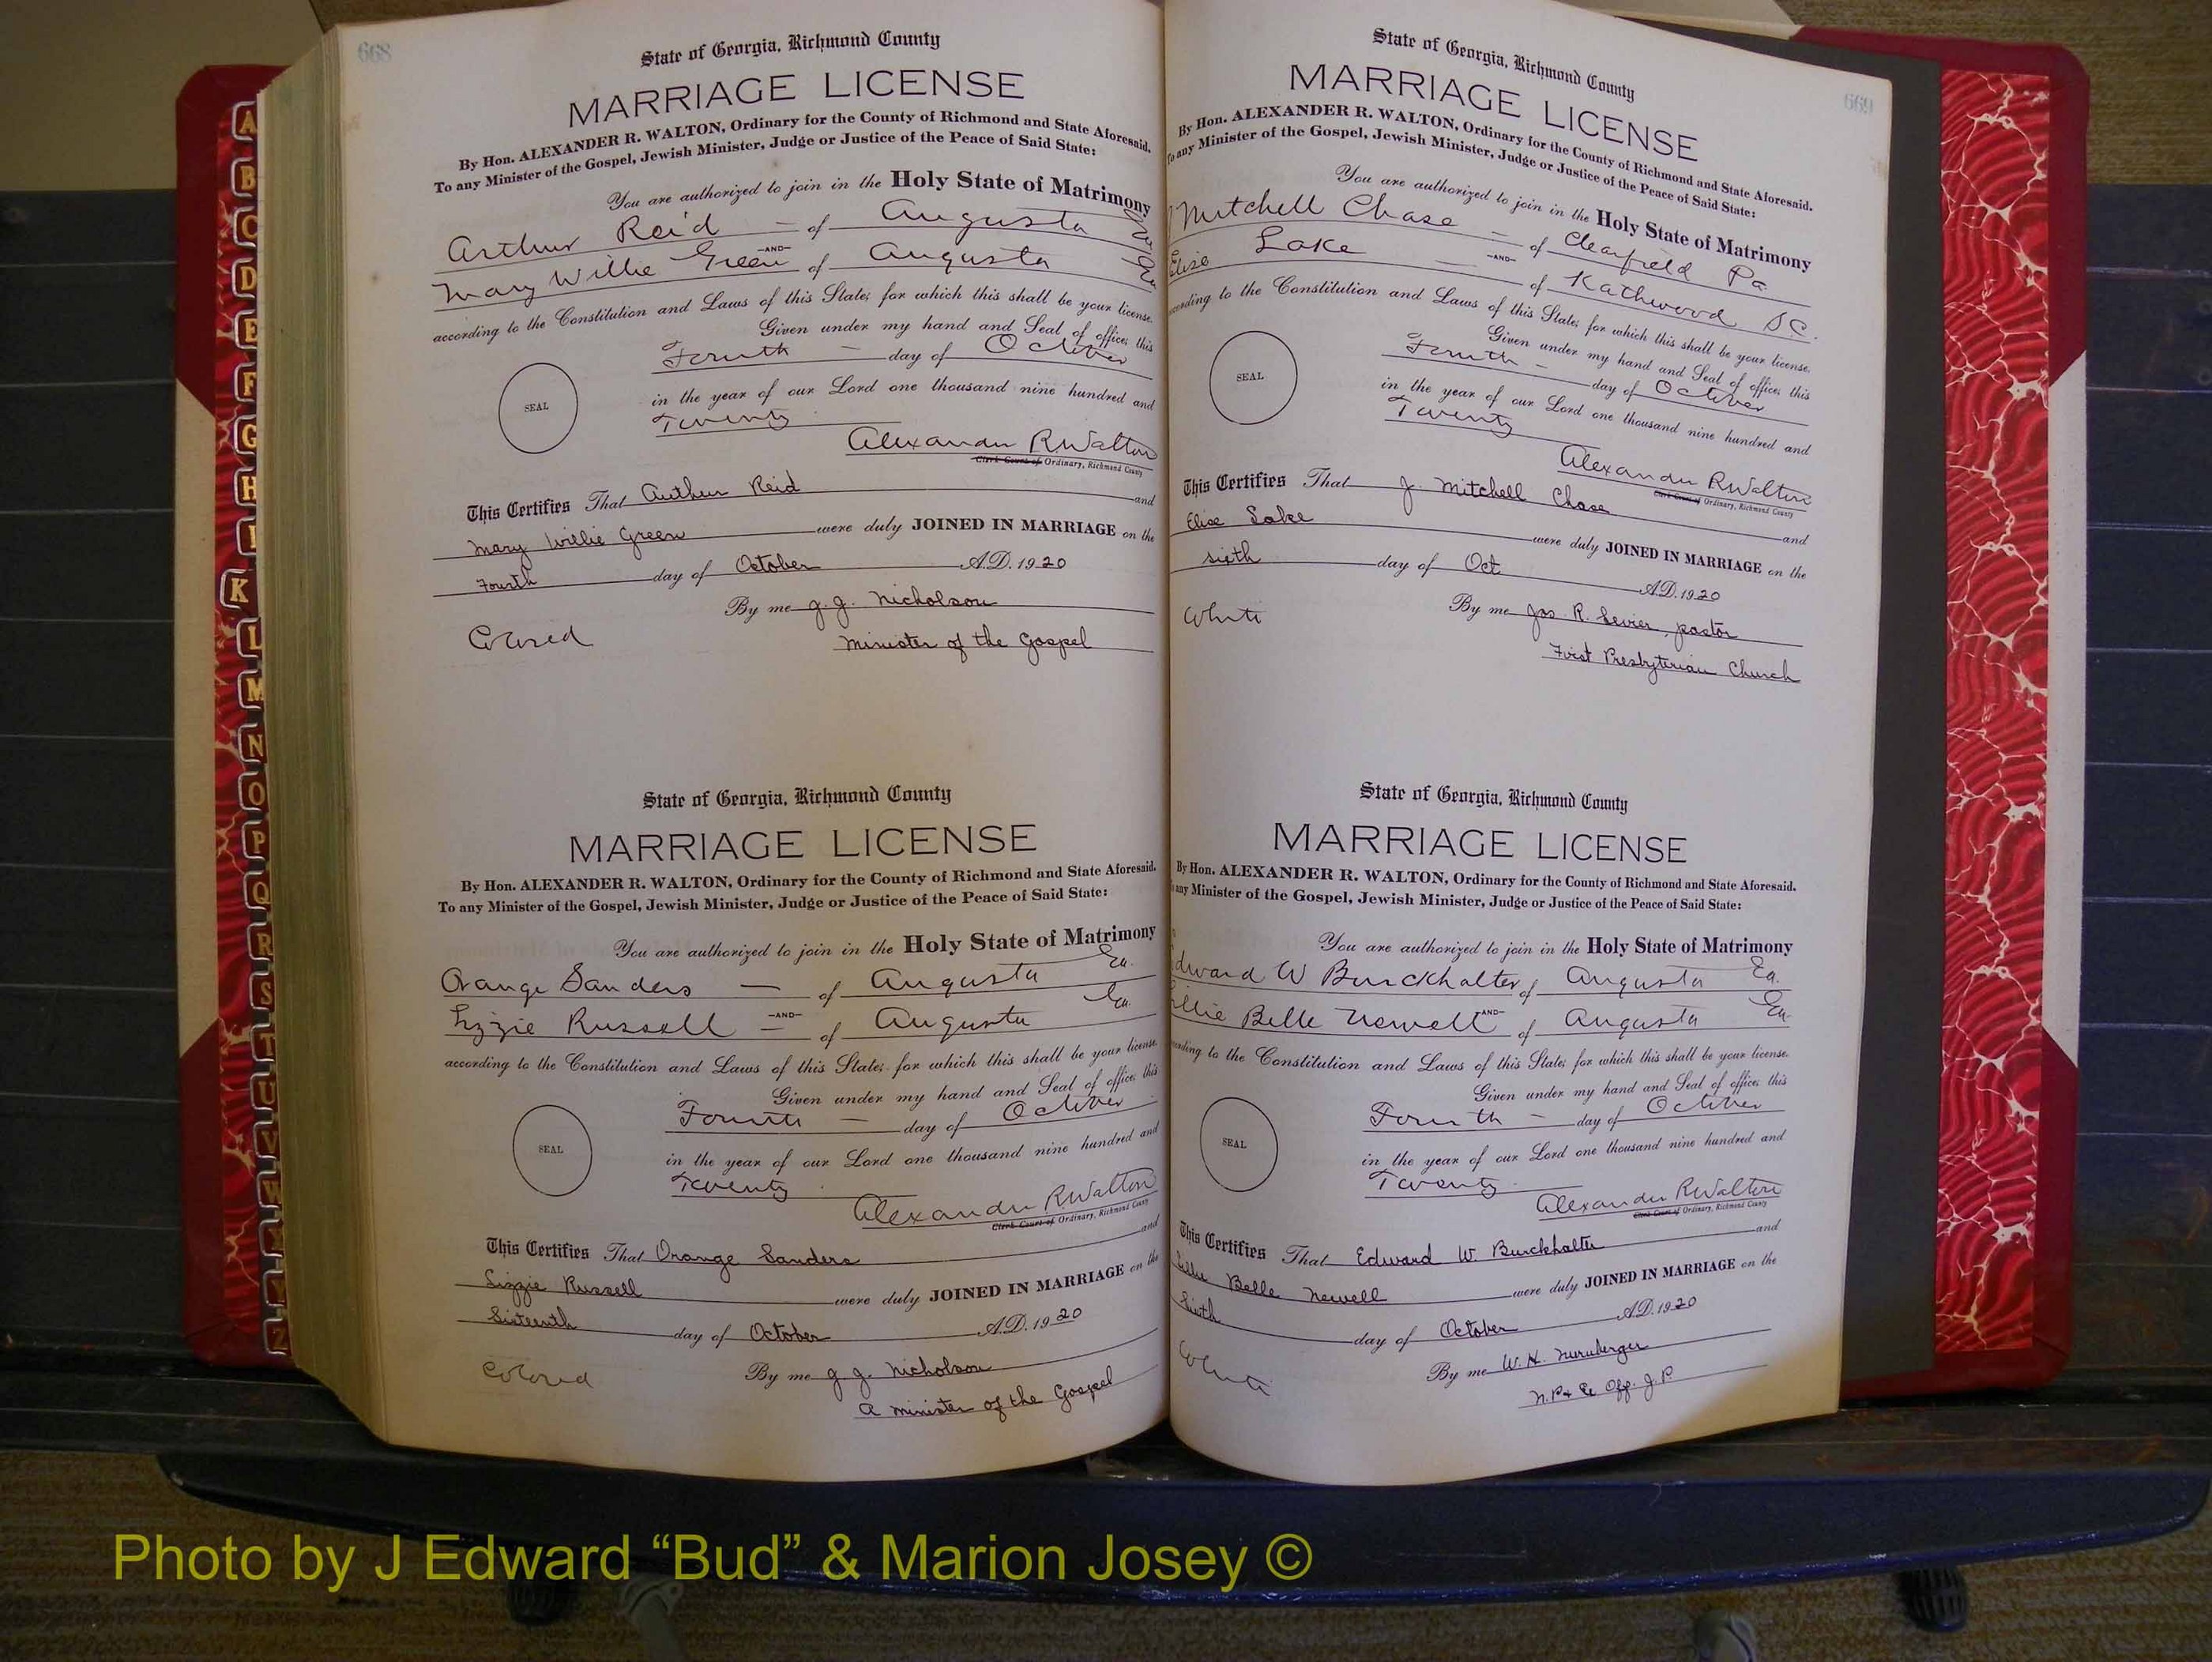 668
State of Georgia, Richmond County
MARRIAGE LICENSE
By Hon. ALEXANDER R. WALTON, Ordinary for the County of Richmond and State Aforesaid.
To any Minister of the Gospel, Jewish Minister, Judge or Justice of the Peace of Said State:
You are authorized to join in the Holy State of Matrimony
Arthur Reid — of Augusta
—AND—
Mary Willie Green of Augusta
according to the Constitution and Laws of this State; for which this shall be your license.
Given under my hand and Seal of office, this
Fourth — day of October
SEAL
in the year of our Lord one thousand nine hundred and
Twenty
Alexander R Walton
Clerk Court of Ordinary, Richmond County
This Certifies That Arthur Reid and
Mary Willie Green were duly JOINED IN MARRIAGE on the
Fourth day of October A.D. 1920
By me J. J. Nicholson
Colored Minister of the Gospel
State of Georgia, Richmond County
MARRIAGE LICENSE
By Hon. ALEXANDER R. WALTON, Ordinary for the County of Richmond and State Aforesaid.
To any Minister of the Gospel, Jewish Minister, Judge or Justice of the Peace of Said State:
You are authorized to join in the Holy State of Matrimony
Orange Sanders — of Augusta Ga.
—AND—
Lizzie Russell — of Augusta Ga.
according to the Constitution and Laws of this State; for which this shall be your license.
Given under my hand and Seal of office, this
Fourth — day of October
SEAL
in the year of our Lord one thousand nine hundred and
Twenty
Alexander R Walton
Clerk Court of Ordinary, Richmond County
This Certifies That Orange Sanders and
Lizzie Russell were duly JOINED IN MARRIAGE on the
Sixteenth day of October A.D. 1920
Colored By me J. J. Nicholson
A minister of the Gospel
669
State of Georgia, Richmond County
MARRIAGE LICENSE
By Hon. ALEXANDER R. WALTON, Ordinary for the County of Richmond and State Aforesaid.
To any Minister of the Gospel, Jewish Minister, Judge or Justice of the Peace of Said State:
You are authorized to join in the Holy State of Matrimony
Mitchell Chase — of Clearfield Pa
—AND—
Elise Lake — of Kathwood S.C.
according to the Constitution and Laws of this State; for which this shall be your license.
Given under my hand and Seal of office, this
Fourth — day of October
SEAL
in the year of our Lord one thousand nine hundred and
Twenty
Alexander R Walton
Clerk Court of Ordinary, Richmond County
This Certifies That J. Mitchell Chase and
Elise Lake were duly JOINED IN MARRIAGE on the
sixth day of Oct A.D. 1920
White By me Jos. R. Sevier, pastor
First Presbyterian Church
State of Georgia, Richmond County
MARRIAGE LICENSE
By Hon. ALEXANDER R. WALTON, Ordinary for the County of Richmond and State Aforesaid.
any Minister of the Gospel, Jewish Minister, Judge or Justice of the Peace of Said State:
You are authorized to join in the Holy State of Matrimony
Edward W Burckhalter of Augusta Ga.
—AND—
Lillie Belle Newell of Augusta Ga.
according to the Constitution and Laws of this State; for which this shall be your license.
Given under my hand and Seal of office, this
Fourth — day of October
SEAL
in the year of our Lord one thousand nine hundred and
Twenty
Alexander R Walton
Clerk Court of Ordinary, Richmond County
This Certifies That Edward W. Burckhalter and
Lillie Belle Newell were duly JOINED IN MARRIAGE on the
Sixth day of October A.D. 1920
White By me W. H. Nurnberger
N.P. & Ex Off. J.P.
A
B
C
D
E
F
G
H
I
K
L
M
N
O
P
Q
R
S
T
U
V
W
Z
Photo by J Edward “Bud” & Marion Josey ©